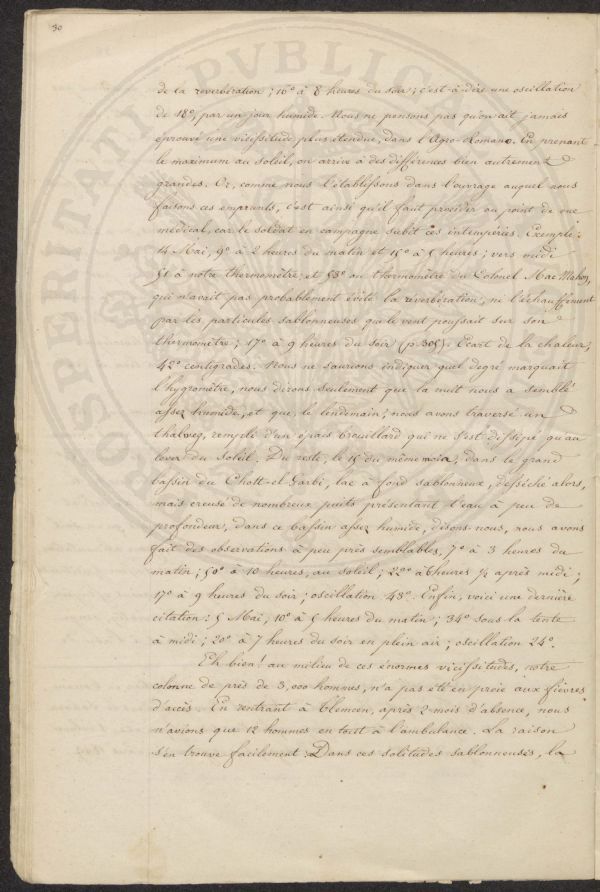 30
de la réverbération ; 16° à 8 heures du soir ; c'est-à-dire une oscillation
de 18°, par un jour humide. Nous ne pensons pas qu'on ait jamais
éprouvé une vicissitude plus étendue, dans l'Agro-Romano. En prenant
le maximum au soleil, on arrive à des différences bien autrement
grandes. Or, comme nous l'établissons dans l'ouvrage auquel nous
faisons ces emprunts, c'est ainsi qu'il faut procéder au point de vue
médical, car le soldat en campagne subit ces intempéries. Exemple :
14 Mai, 9° à 2 heures du matin et 15° à 5 heures ; vers midi
51 à notre thermomètre et 53° au thermomètre du Colonel Mac Mahon,
qui n'avait pas probablement évité la réverbération, ni l'échauffement
par les particules sablonneuses que le vent poussait sur son
thermomètre ; 17° à 9 heures du soir (p. 305). Ecart de la chaleur,
42° centigrades. Nous ne saurions indiquer quel degré marquait
l'hygromètre, nous dirons seulement que la nuit nous a semblé
assez humide, et que le lendemain, nous avons traversé un
thalweg, rempli d'un épais brouillard qui ne s'est dissipé qu'au
lever du soleil. Du reste, le 15 du même mois, dans le grand
bassin du Chott-el-Garbi, lac à fond sablonneux, desséché alors,
mais creusé de nombreux puits présentant l'eau à peu de
profondeur, dans ce bassin assez humide, disons-nous, nous avons
fait des observations à peu près semblables, 7° à 3 heures du
matin ; 50° à 10 heures, au soleil ; 22° à 6 heures ½ après midi ;
17° à 9 heures du soir ; oscillation 43°. Enfin, voici une dernière
citation : 5 Mai, 10° à 5 heures du matin ; 34° sous la tente
à midi ; 20° à 7 heures du soir en plein air ; oscillation 24°.
Eh bien ! au milieu de ces énormes vicissitudes, notre
colonne de près de 3,000 hommes, n'a pas été en proie aux fièvres
d'accès. En rentrant à Tlemcen, après 2 mois d'absence, nous
n'avions que 12 hommes en tout à l'ambulance. La raison
s'en trouve facilement : Dans ces solitudes sablonneuses, la